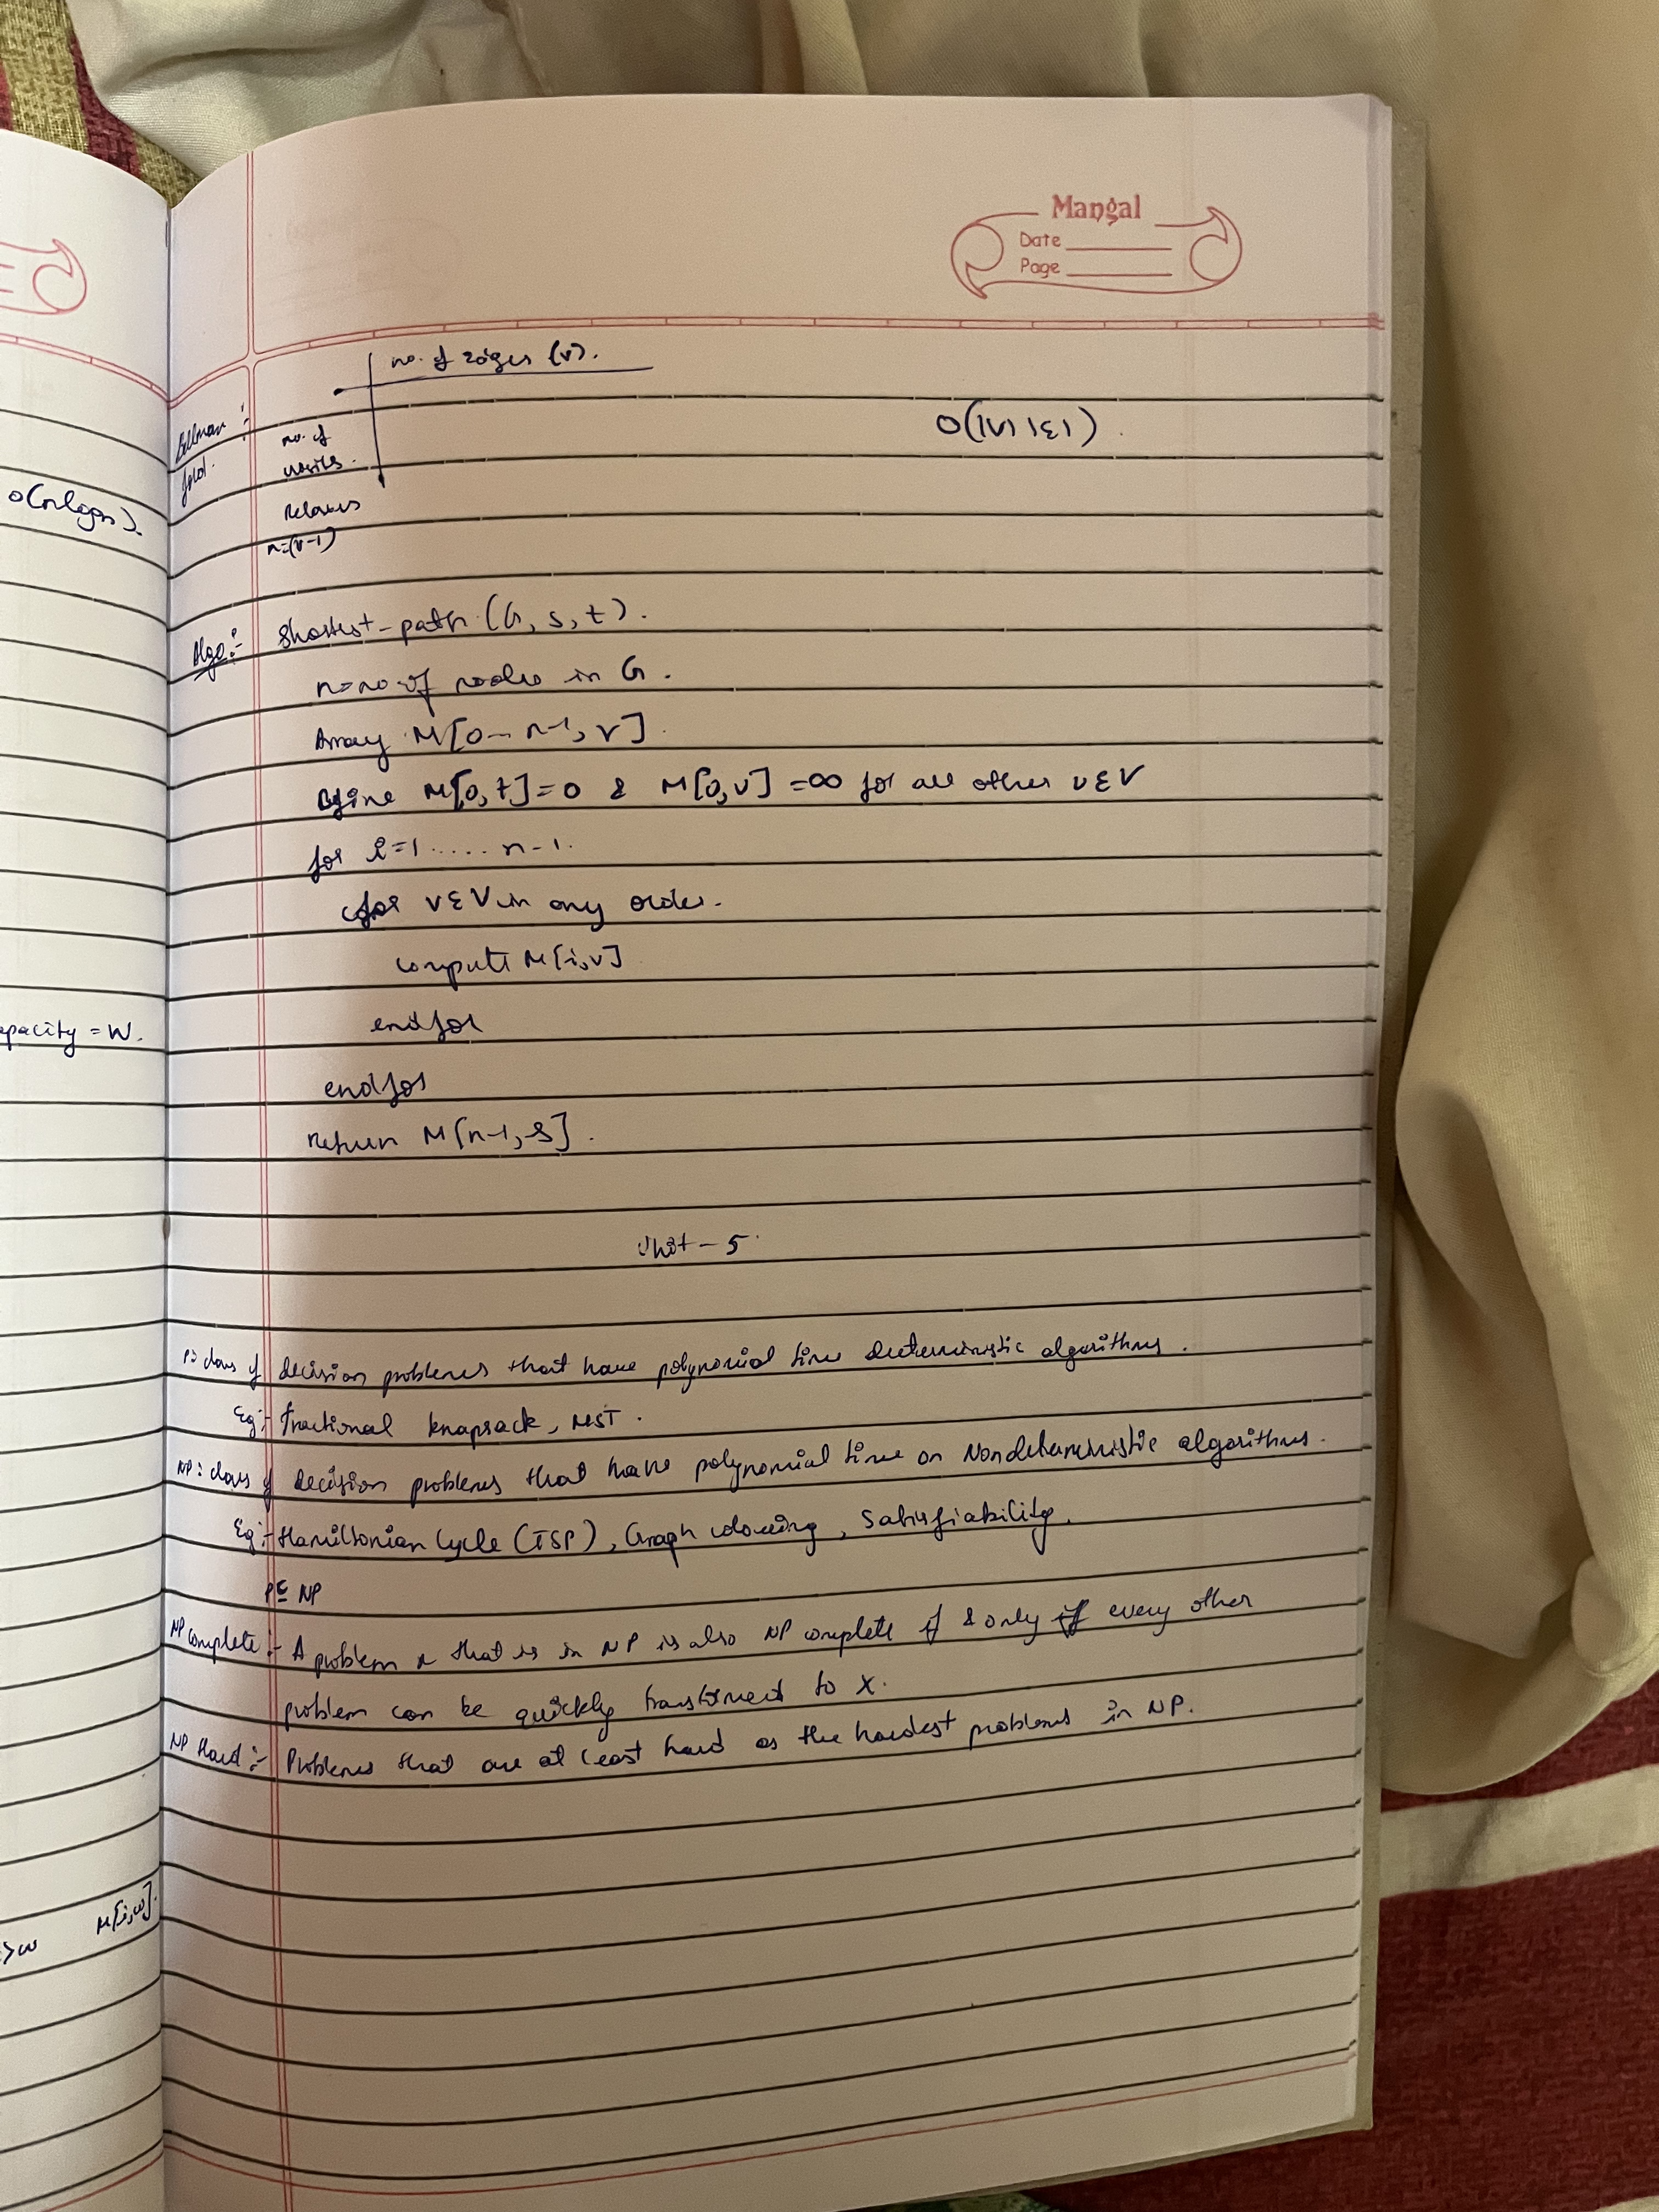 Mangal
Date
Page
no. of edges (v).
Bellman :-
ford.
no. of
O(|V| |E|)
Relaxes
n=(v-1)
O(nlogn).
Algo:- Shortest-path (G, s, t).
n=no of nodes in G.
Array M[0-- n-1, V].
Define M[0, t]=0 & M[0,v] =∞ for all other v ε V
for i=1 ..... n-1.
for v ε V in any order.
compute M[i,v]
apacity = W.
endfor
endfor
Return M[n-1, s].
Unit - 5
P: class of decision problems that have polynomial time deterministic algorithms.
Eg:- Fractional knapsack, MST.
NP: class of decision problems that have polynomial time on Nondeterministic algorithms.
Eg:- Hamiltonian Cycle (TSP), Graph colouring, Satisfiability.
P ⊆ NP
NP complete:- A problem x that is in NP is also NP complete if & only if every other
problem can be quickly transformed to X.
NP Hard:- Problems that are at least hard as the hardest problems in NP.
M[i,w].
>w